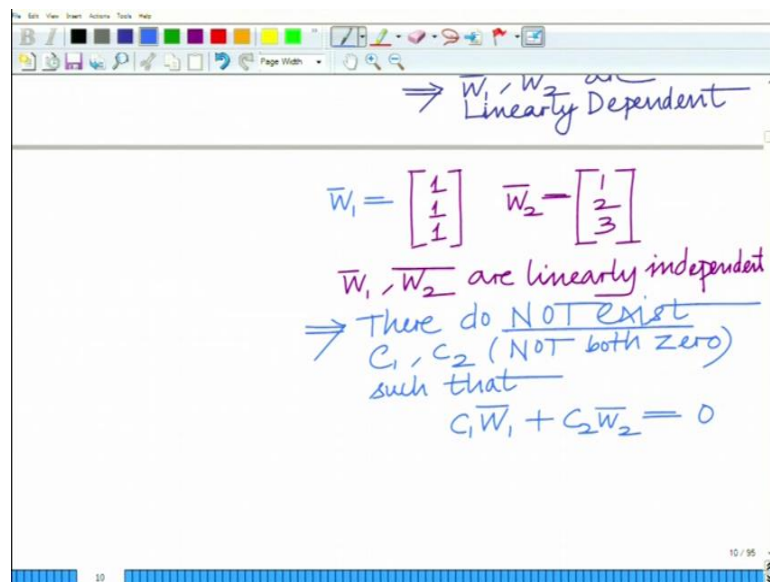 File Edit View Insert Actions Tools Help
B I
Page Width
⇒ W̅₁, W̅₂ are
Linearly Dependent
W̅₁ = [1 1 1] W̅₂ = [1 2 3]
W̅₁, W̅₂ are linearly independent
⇒ There do NOT exist
C₁, C₂ (NOT both zero)
such that
C₁W̅₁ + C₂W̅₂ = 0
10 / 95
10